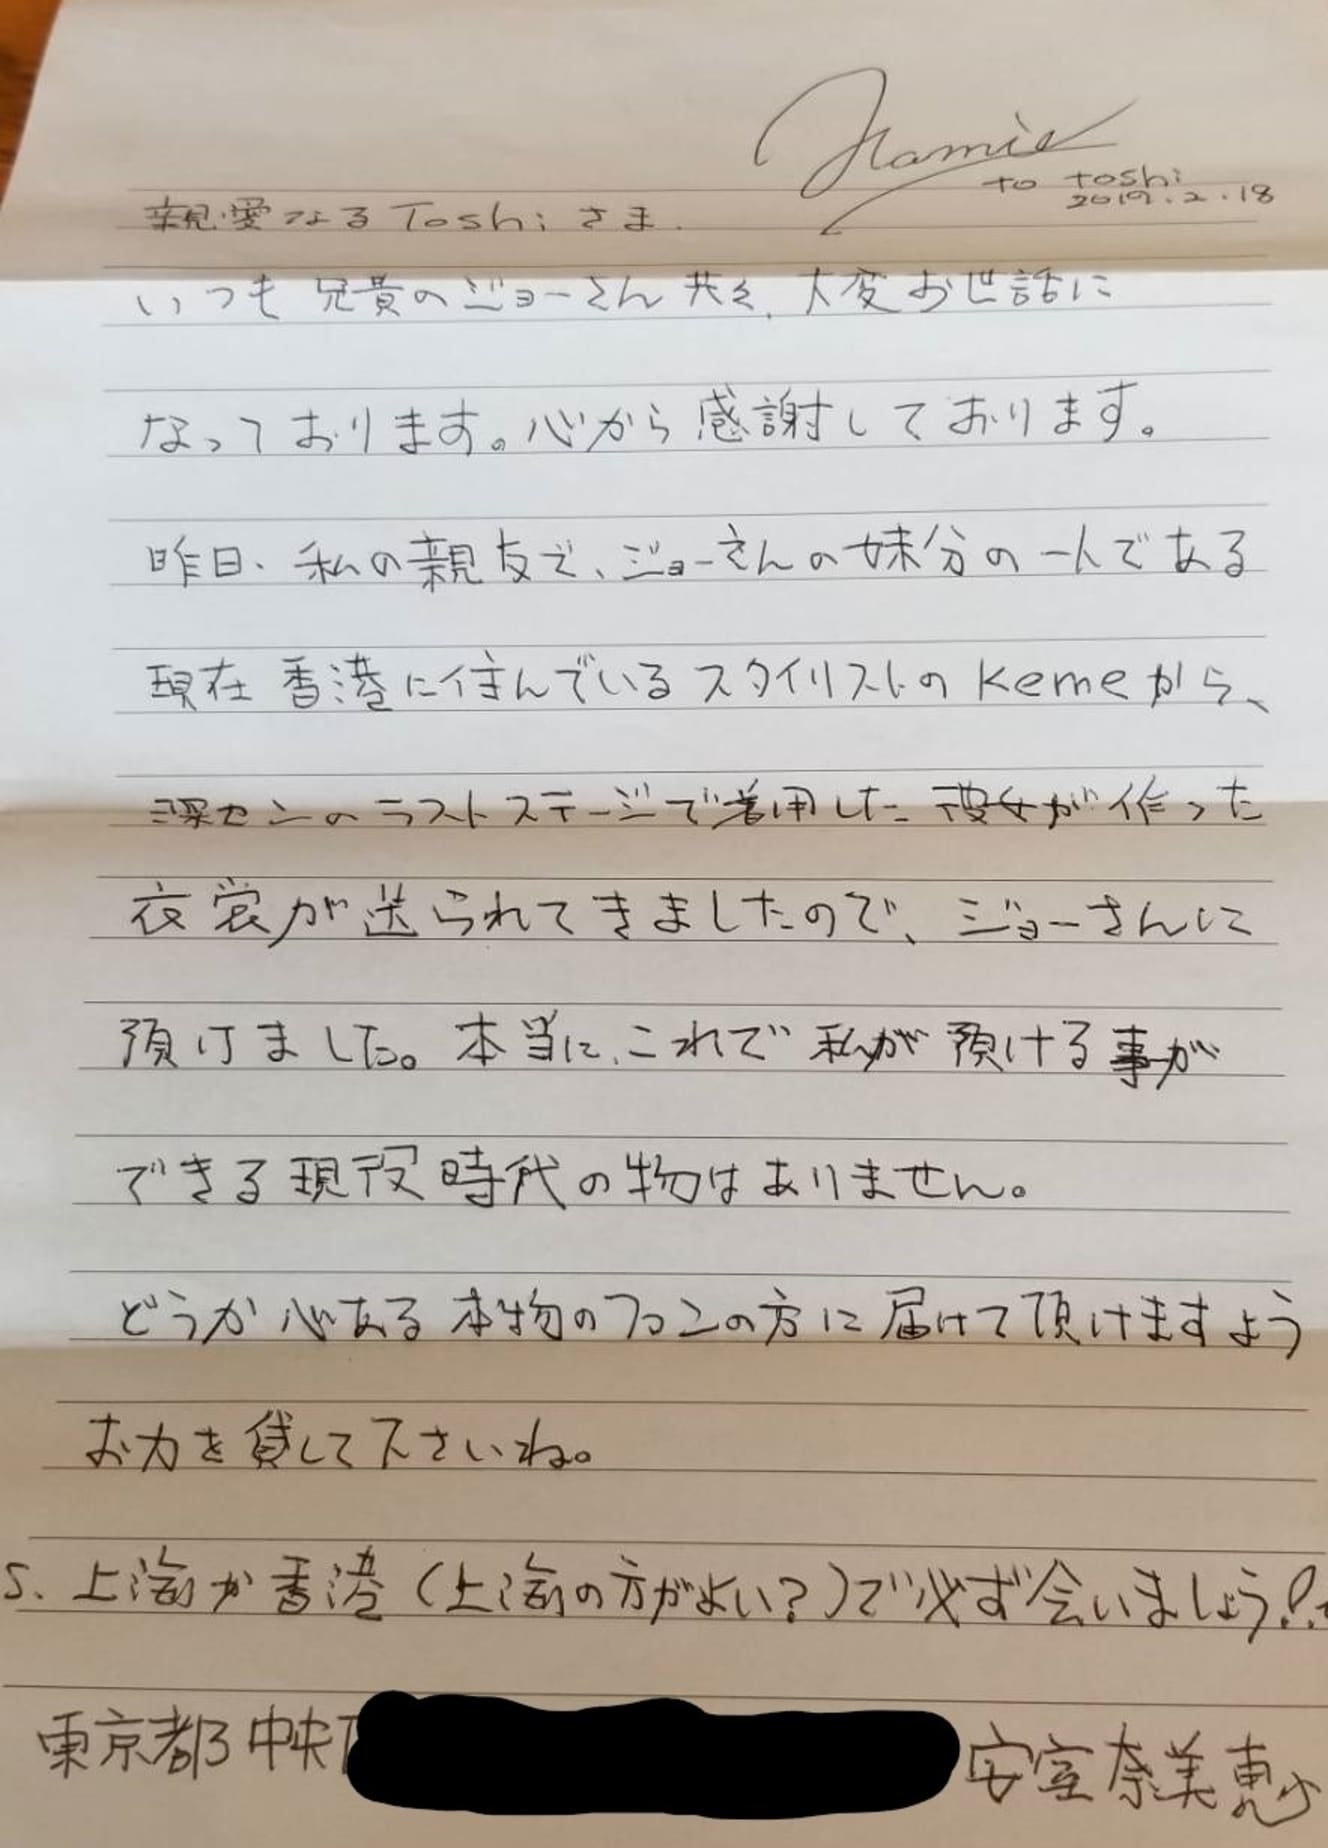 Namie
to toshi
2019.2.18
親愛なる Toshiさま.
いつも兄貴のジョーさん共々、大変お世話に
なっております。心から感謝しております。
昨日、私の親友で、ジョーさんの妹分の一人である
現在香港に住んでいるスタイリストのKemeから、
深センのラストステージで着用した彼女が作った
衣裳が送られてきましたので、ジョーさんに
預けました。本当に、これで私が預ける事が
できる現役時代の物はありません。
どうか心ある本物のファンの方に届けて頂けますよう
お力を貸して下さいね。
S. 上海か香港(上海の方がよい?)で必ず会いましょう!
東京都中央
安室奈美恵